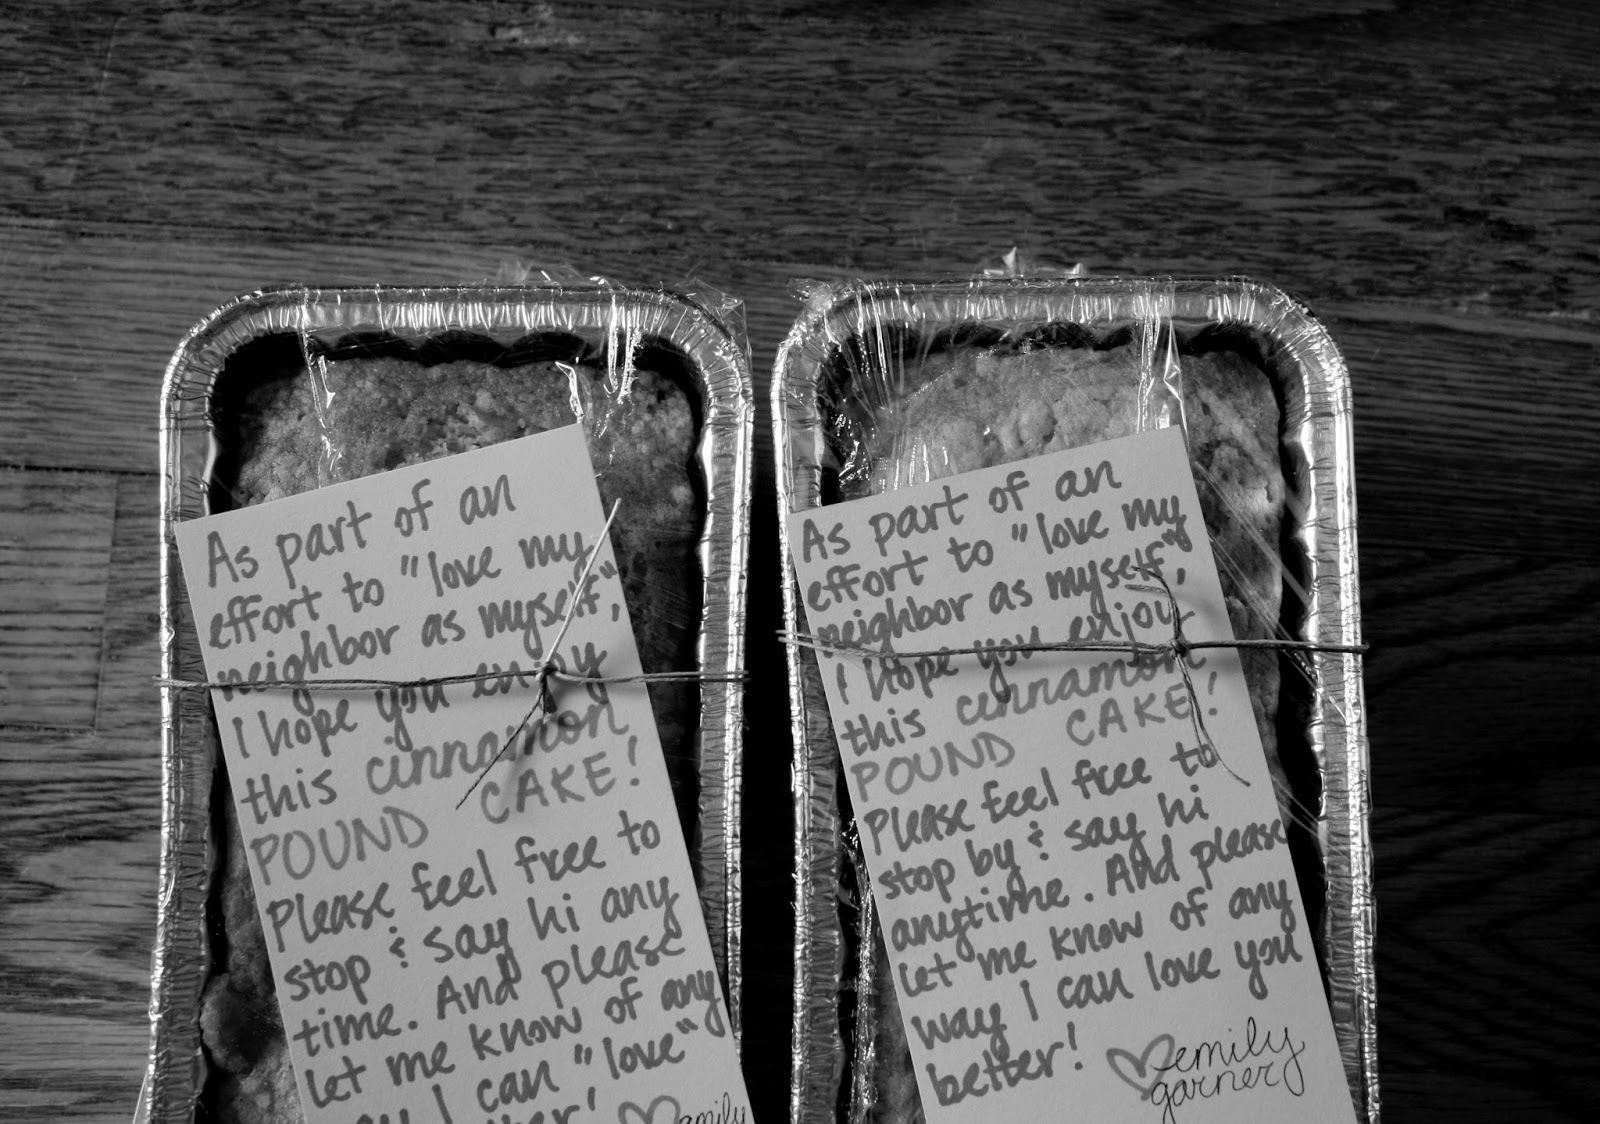 As part of an
effort to "love my
neighbor as myself",
I hope you enjoy
this cinnamon
POUND CAKE!
Please feel free to
stop & say hi any
time. And please
let me know of any
I can "love"
emily
As part of an
effort to "love my
neighbor as myself",
I hope you enjoy
this cinnamon
POUND CAKE!
Please feel free to
stop by & say hi
anytime. And please
let me know of any
way I can love you
better!
emily
garner